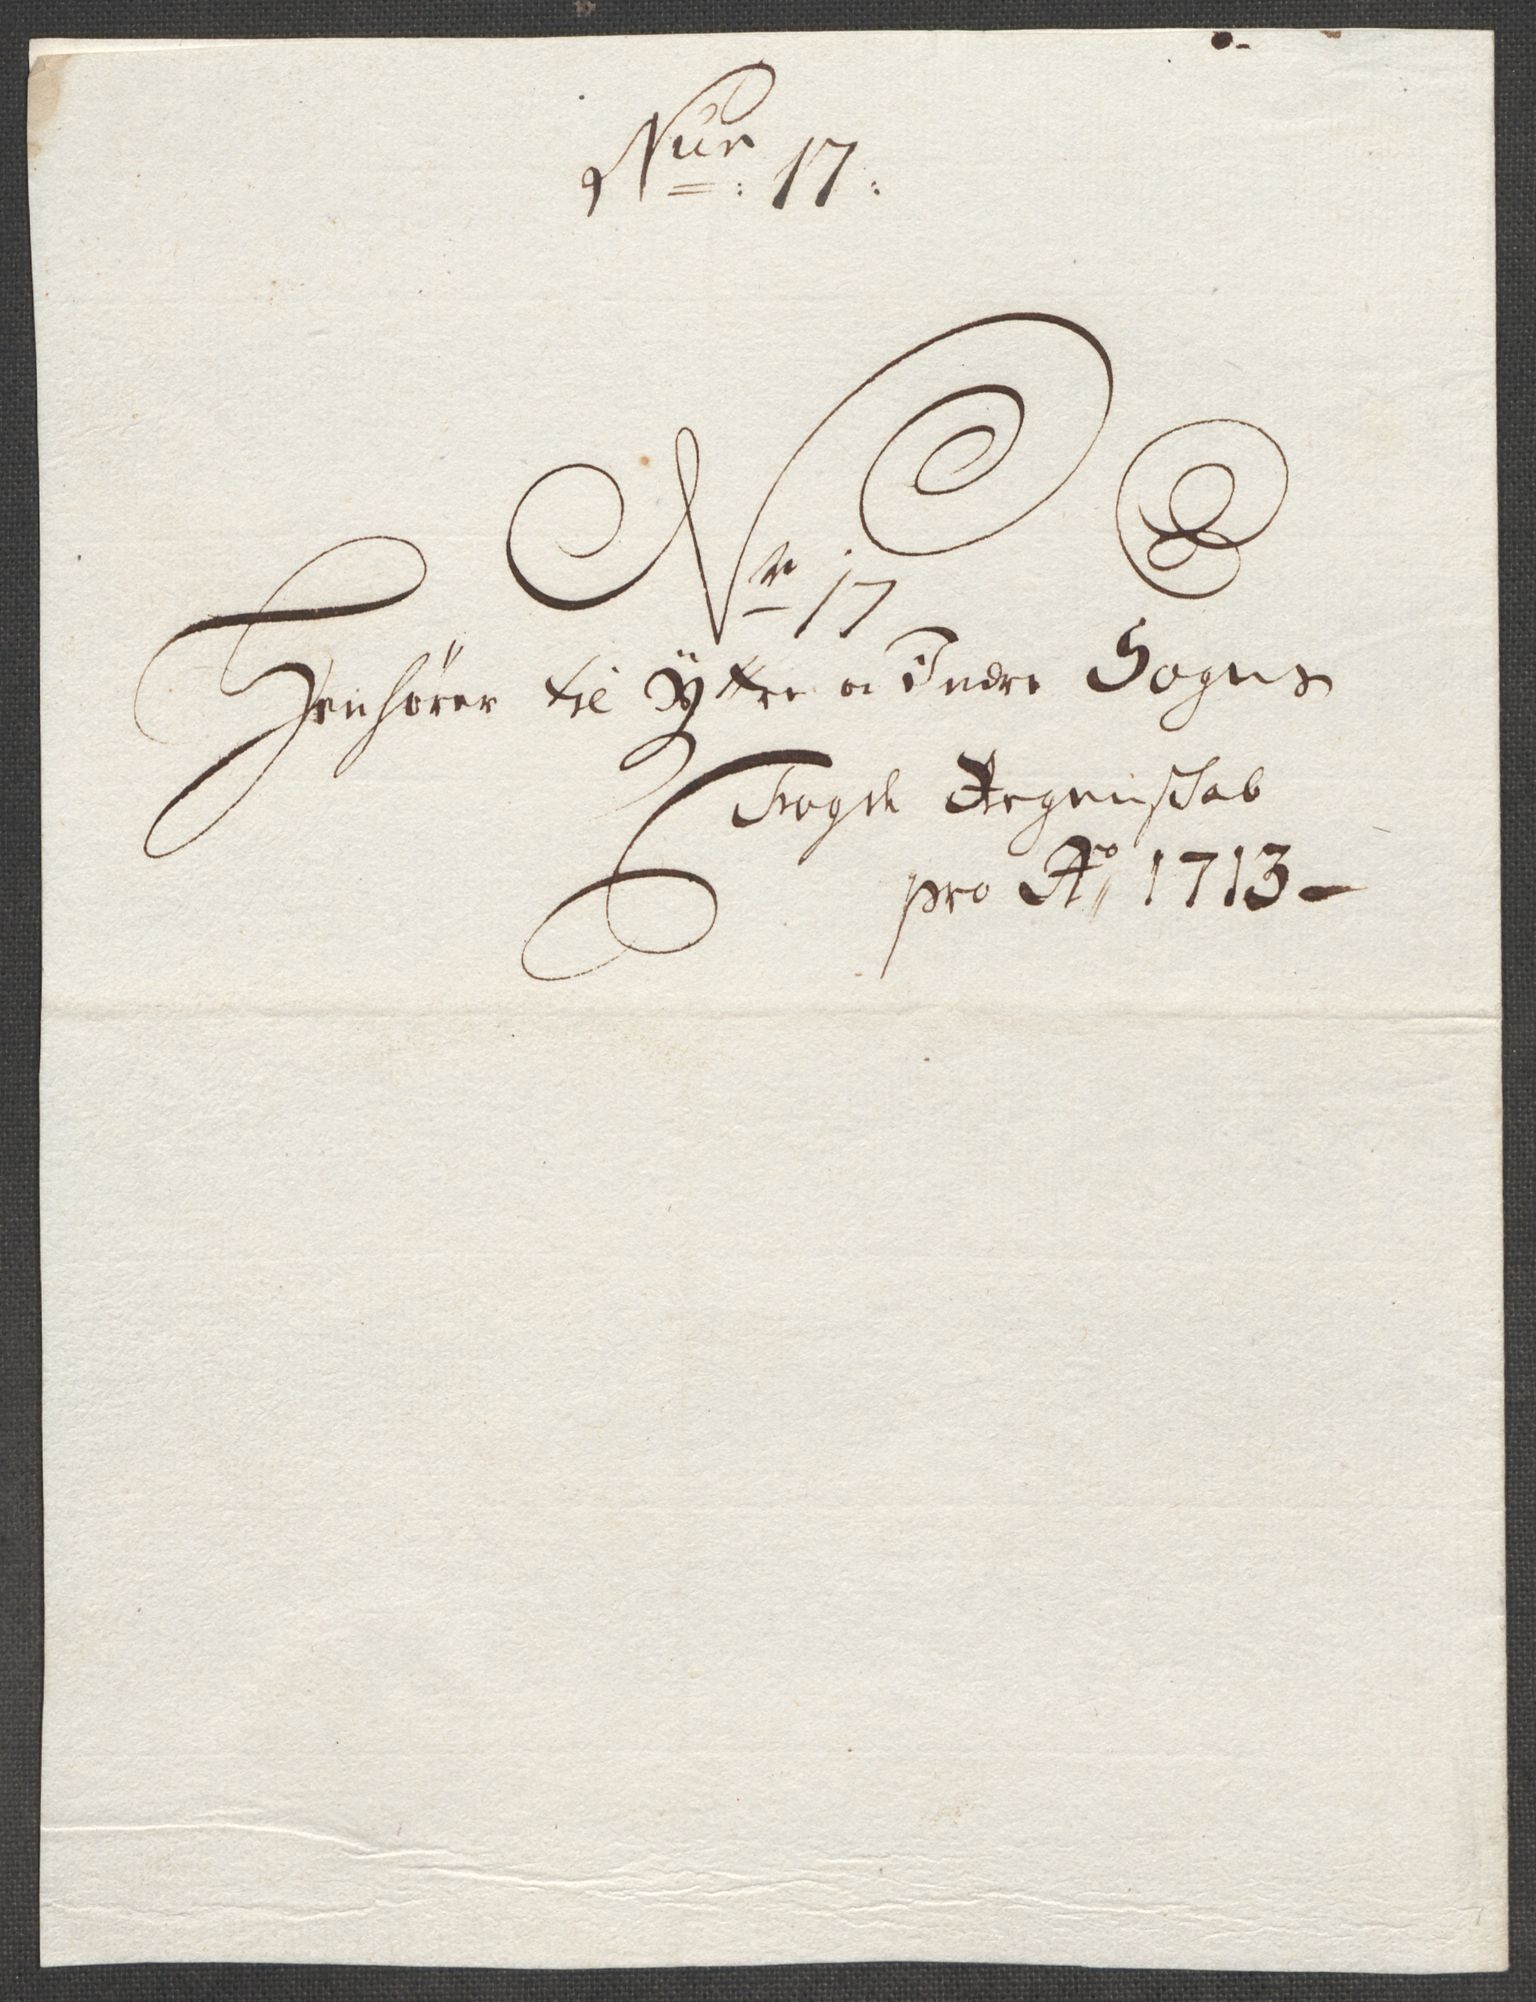 Nur: 17:
Nr 17
Henhörer til Ÿttre oc Indre Sogns
Fogd: Regenschab
pro Ao 1713